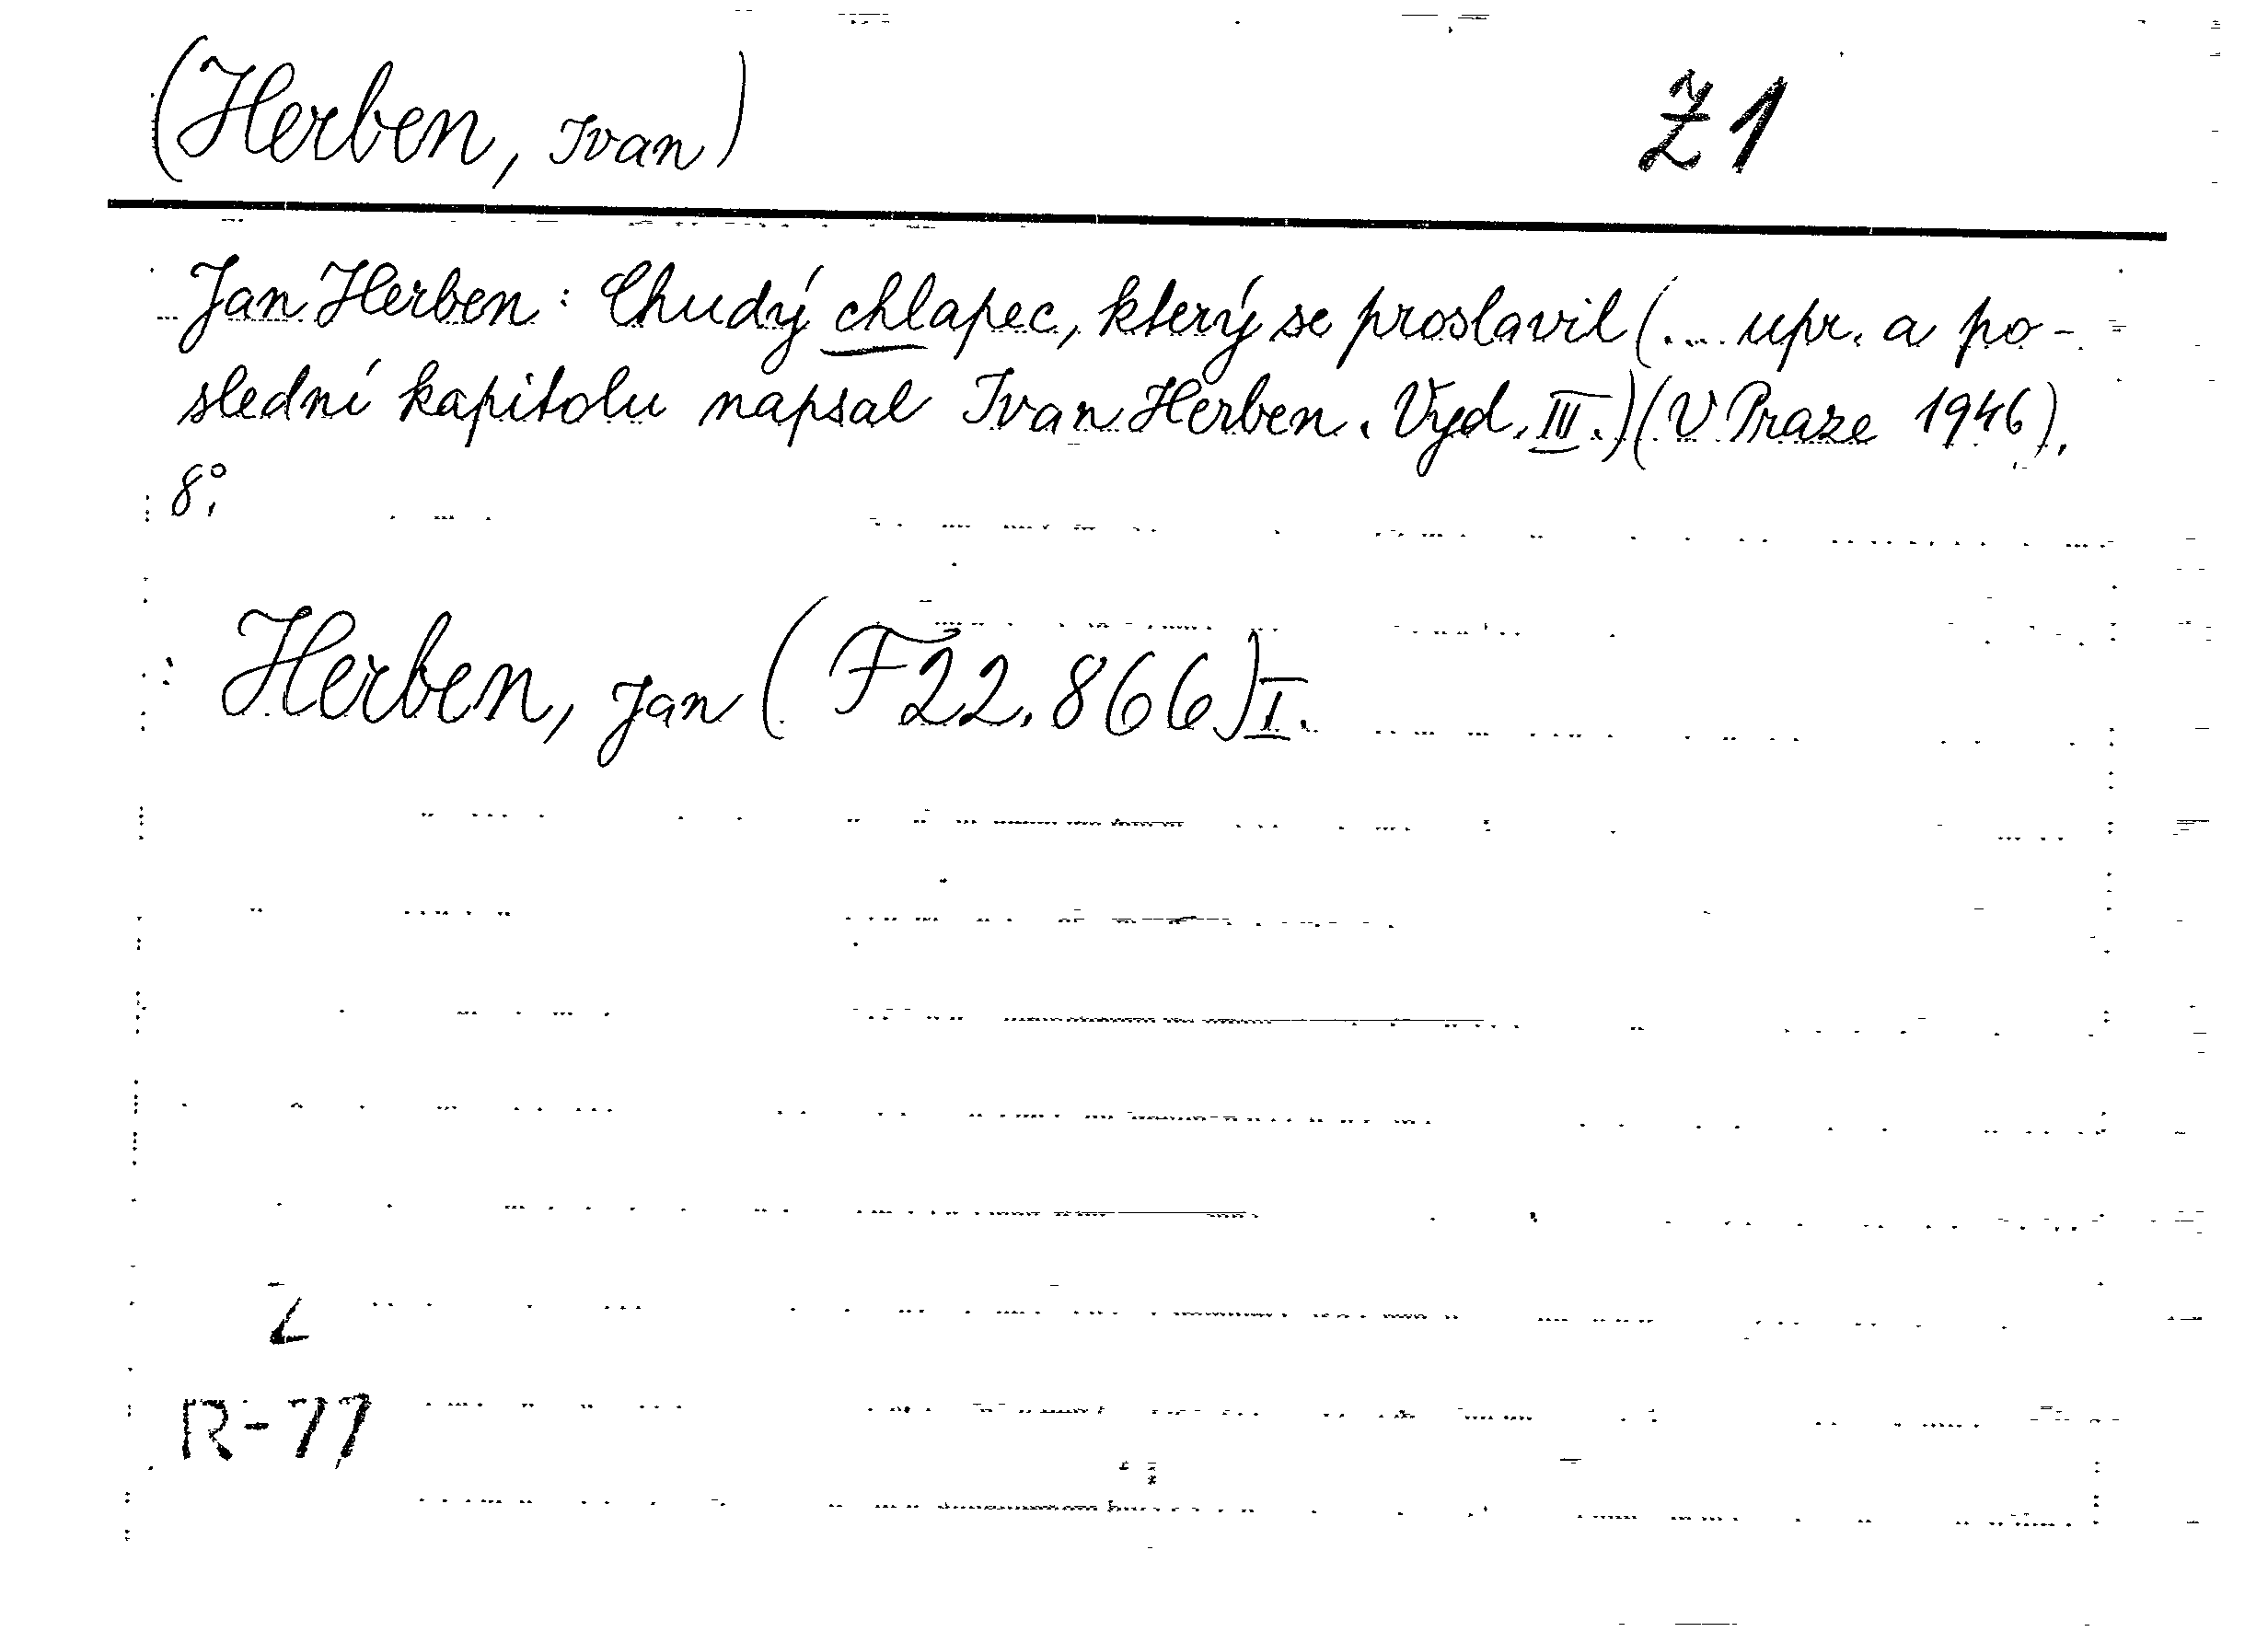 (Herben, Ivan) Z1
Jan Herben: Chudý chlapec, který se proslavil (... upr. a po-
slední kapitolu napsal Ivan Herben. Vyd. III.) (V Praze 1946).
8°.
Herben, Jan (F 22.866) I.
Z
R-77